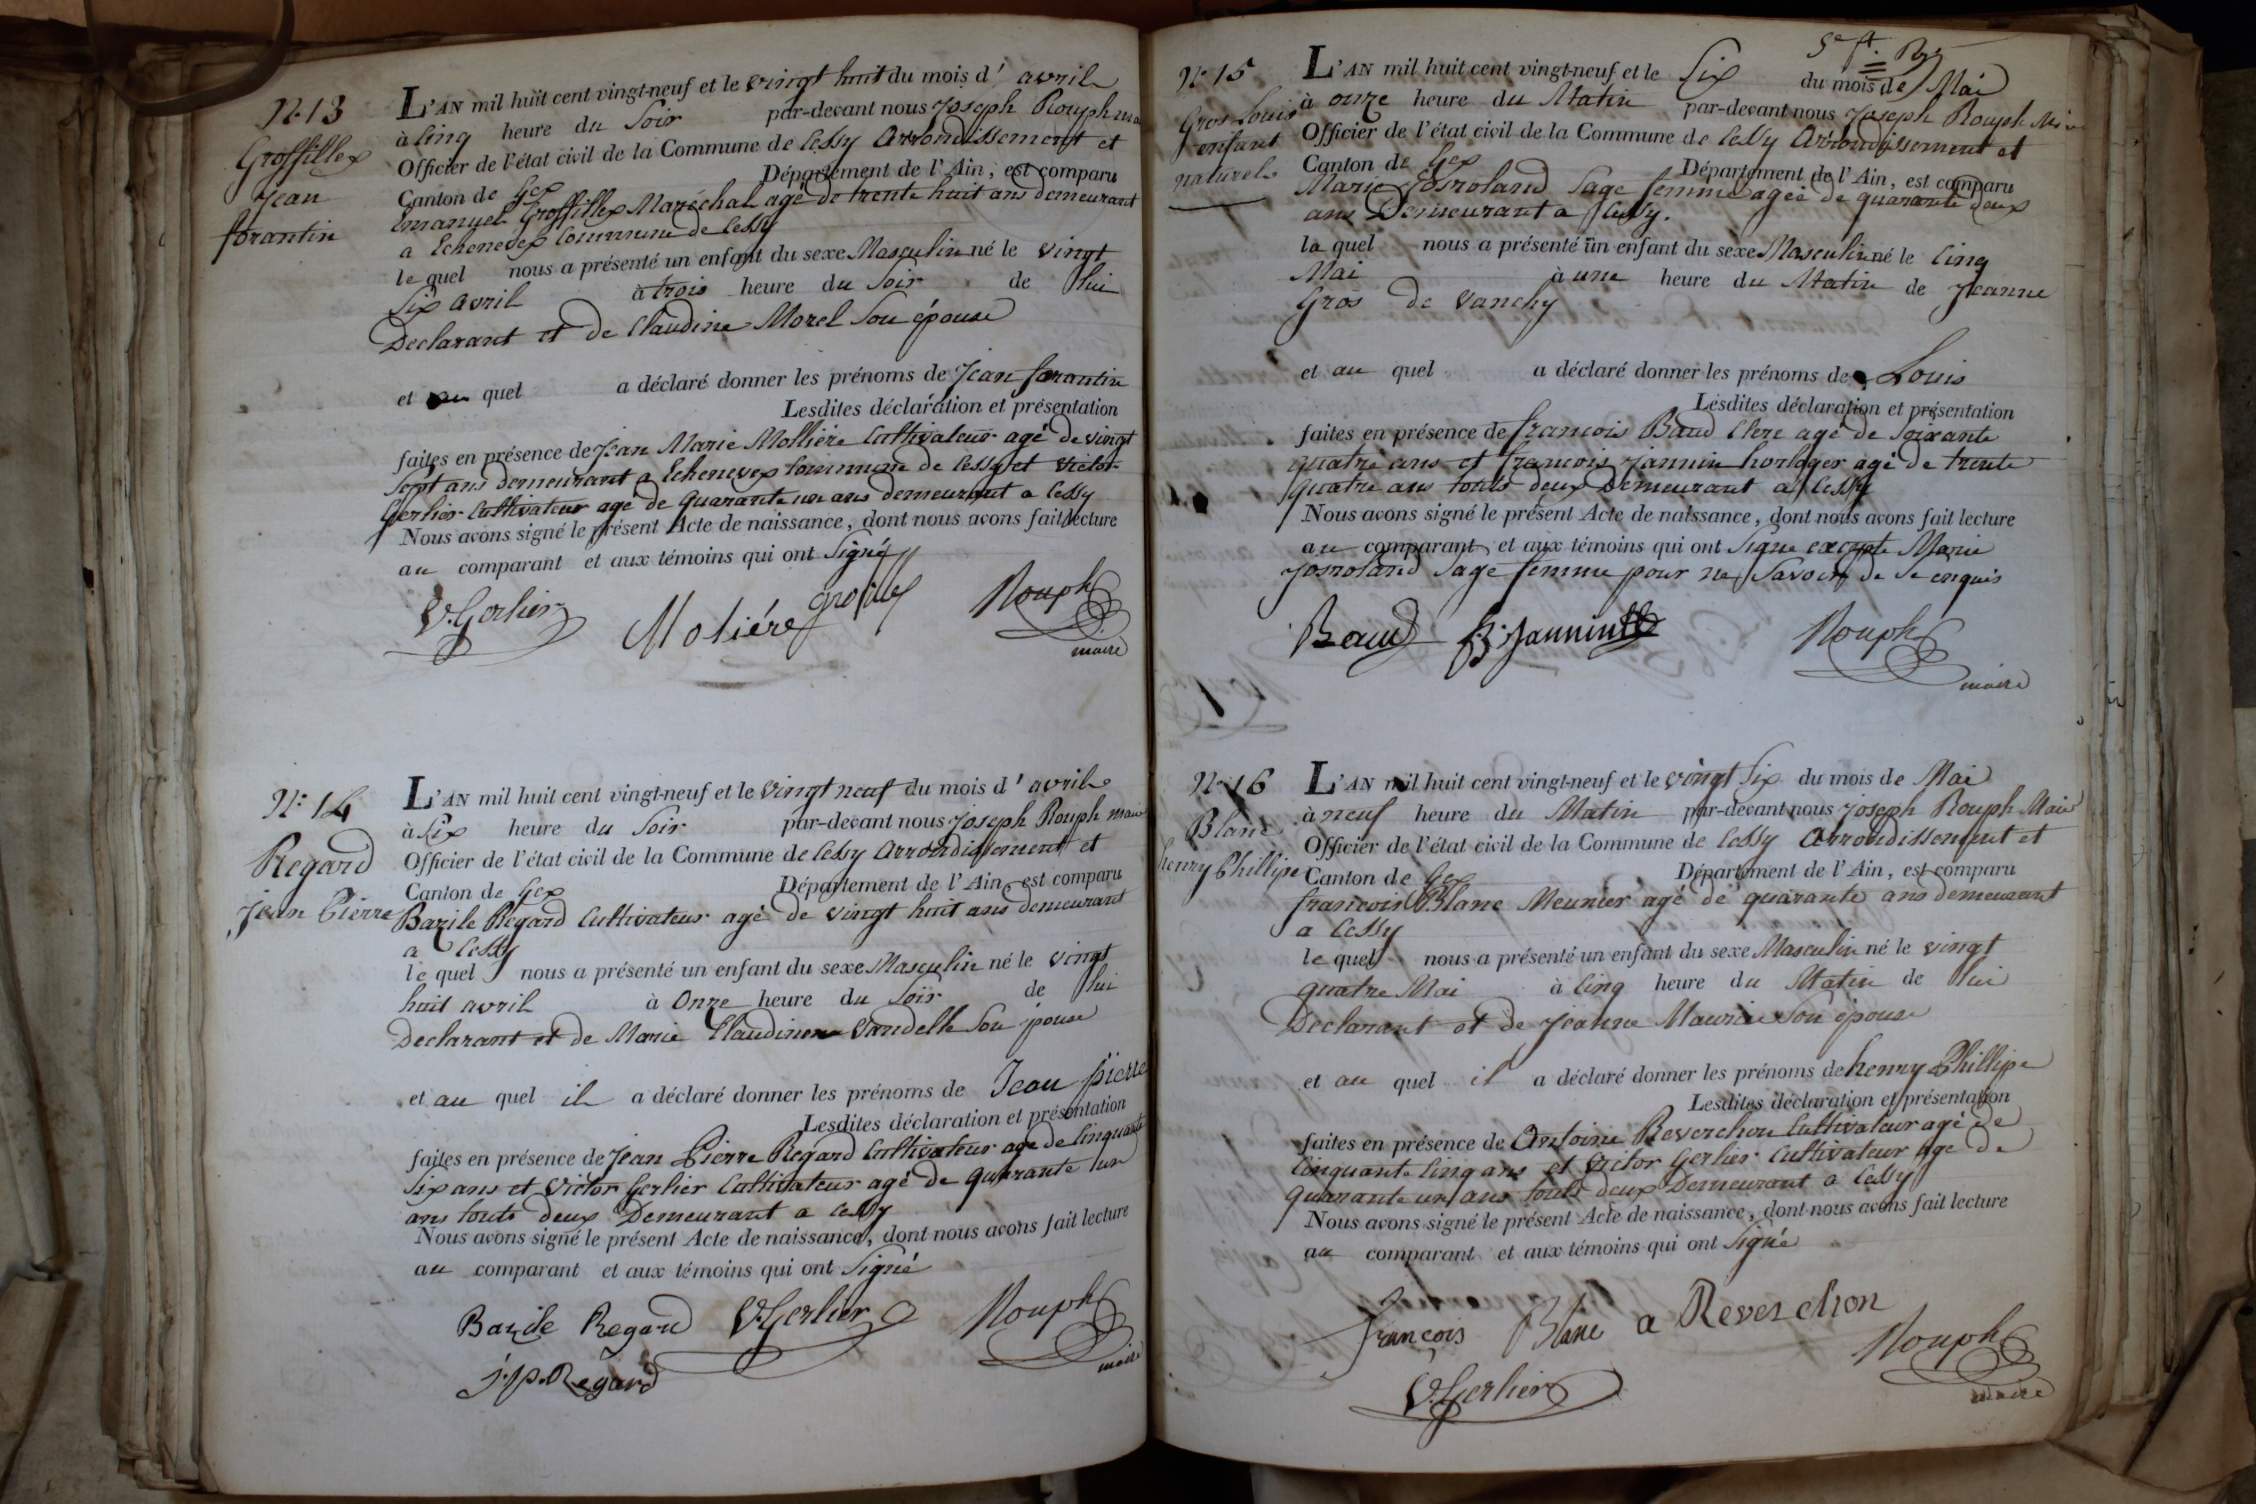 N.13
Groffillex
Jean
forantin
L'AN mil huit cent vingt-neuf et le vingt huit du mois d' avril
à Cinq heure du Soir par-devant nous Joseph Rouph
Officier de l'état civil de la Commune de Cessy Arrondissement et
Canton de Gex Département de l'Ain, est comparu
Emanuel Groffillex Maréchal agé de trente huit ans demeurant
a Echenevex Commune de Cessy
le quel nous a présenté un enfant du sexe Masculin né le vingt
Six avril à trois heure du Soir de lui
Declarant et de Claudine Morel Son épouse
et au quel a déclaré donner les prénoms de Jean forantin
Lesdites déclaration et présentation
faites en présence de Jean Marie Molliére Cultivateur agé de vingt
Sept ans demeurant a Echenevex Commune de Cessy et Victor
Gerlier Cultivateur agé de quarante un ans demeurant a Cessy
Nous avons signé le présent Acte de naissance, dont nous avons fait lecture
au comparant et aux témoins qui ont Signé
V. Gerlier Moliére Rouph
maire
N.° 14
Regard
Jean Pierre
L'AN mil huit cent vingt-neuf et le vingt neuf du mois d' avril
à Six heure du Soir par-devant nous Joseph Rouph maire
Officier de l'état civil de la Commune de Cessy Arrondissement et
Canton de Gex Département de l'Ain, est comparu
Bazile Regard Cultivateur agé de vingt huit ans demeurant
a Cessy
le quel nous a présenté un enfant du sexe Masculin né le vingt
huit avril à Onze heure du Soir de lui
Declarant et de Marie Claudine Vandelle Son pouse
et au quel il a déclaré donner les prénoms de Jean pierre
Lesdites déclaration et présentation
faites en présence de Jean Pierre Regard Cultivateur agé de Cinquante
Six ans et Victor Gerlier Cultivateur agé de quarante un
ans touts deux Demeurant a Cessy
Nous avons signé le présent Acte de naissance, dont nous avons fait lecture
au comparant et aux témoins qui ont Signé
Bazile Regard V. Gerlier Rouph
maire
J. P. Regard
N.° 15
Gros Louis
enfant
naturel
L'AN mil huit cent vingt-neuf et le Six du mois de Mai
à onze heure du Matin par-devant nous Joseph Rouph
Officier de l'état civil de la Commune de Cessy Arrondissement et
Canton de Gex Département de l'Ain, est comparu
Marie Josroland Sage femme agée de quarante deux
ans Demeurant a Cessy.
la quel nous a présenté un enfant du sexe Masculin né le Cinq
Mai à une heure du Matin de Jeanne
Gros de Vanchy
et au quel a déclaré donner les prénoms de Louis
Lesdites déclaration et présentation
faites en présence de francois Baud Clerc agé de Soixante
quatre ans et francois Jannin horloger agé de trente
quatre ans touts deux Demeurant a Cessy
Nous avons signé le présent Acte de naissance, dont nous avons fait lecture
au comparant et aux témoins qui ont Signe excepte Marie
Josroland Sage femme pour ne Savoir de Se enquis
Baud Jannin Rouph
maire
N.° 16
Blanc
henry Phillipe
L'AN mil huit cent vingt-neuf et le vingt Six du mois de Mai
à neuf heure du Matin par-devant nous Joseph Rouph Maire
Officier de l'état civil de la Commune de Cessy Arrondissement et
Canton de Gex Département de l'Ain, est comparu
francois Blanc Meunier agé de quarante ans demeurant
a Cessy
le quel nous a présenté un enfant du sexe Masculin né le vingt
quatre Mai à Cinq heure du Matin de lui
Declarant et de Jeanne Mauricie Son épouse
et au quel il a déclaré donner les prénoms de henry Phillipe
Lesdites déclaration et présentation
faites en présence de Antoine Reverchon Cultivateur agé de
Cinquante Cinq ans et Victor Gerlier Cultivateur age de
quarante un ans touts deux Demeurant a Cessy
Nous avons signé le présent Acte de naissance, dont nous avons fait lecture
au comparant et aux témoins qui ont Signé
François Blanc a Reverchon
Rouph
maire
V. Gerlier